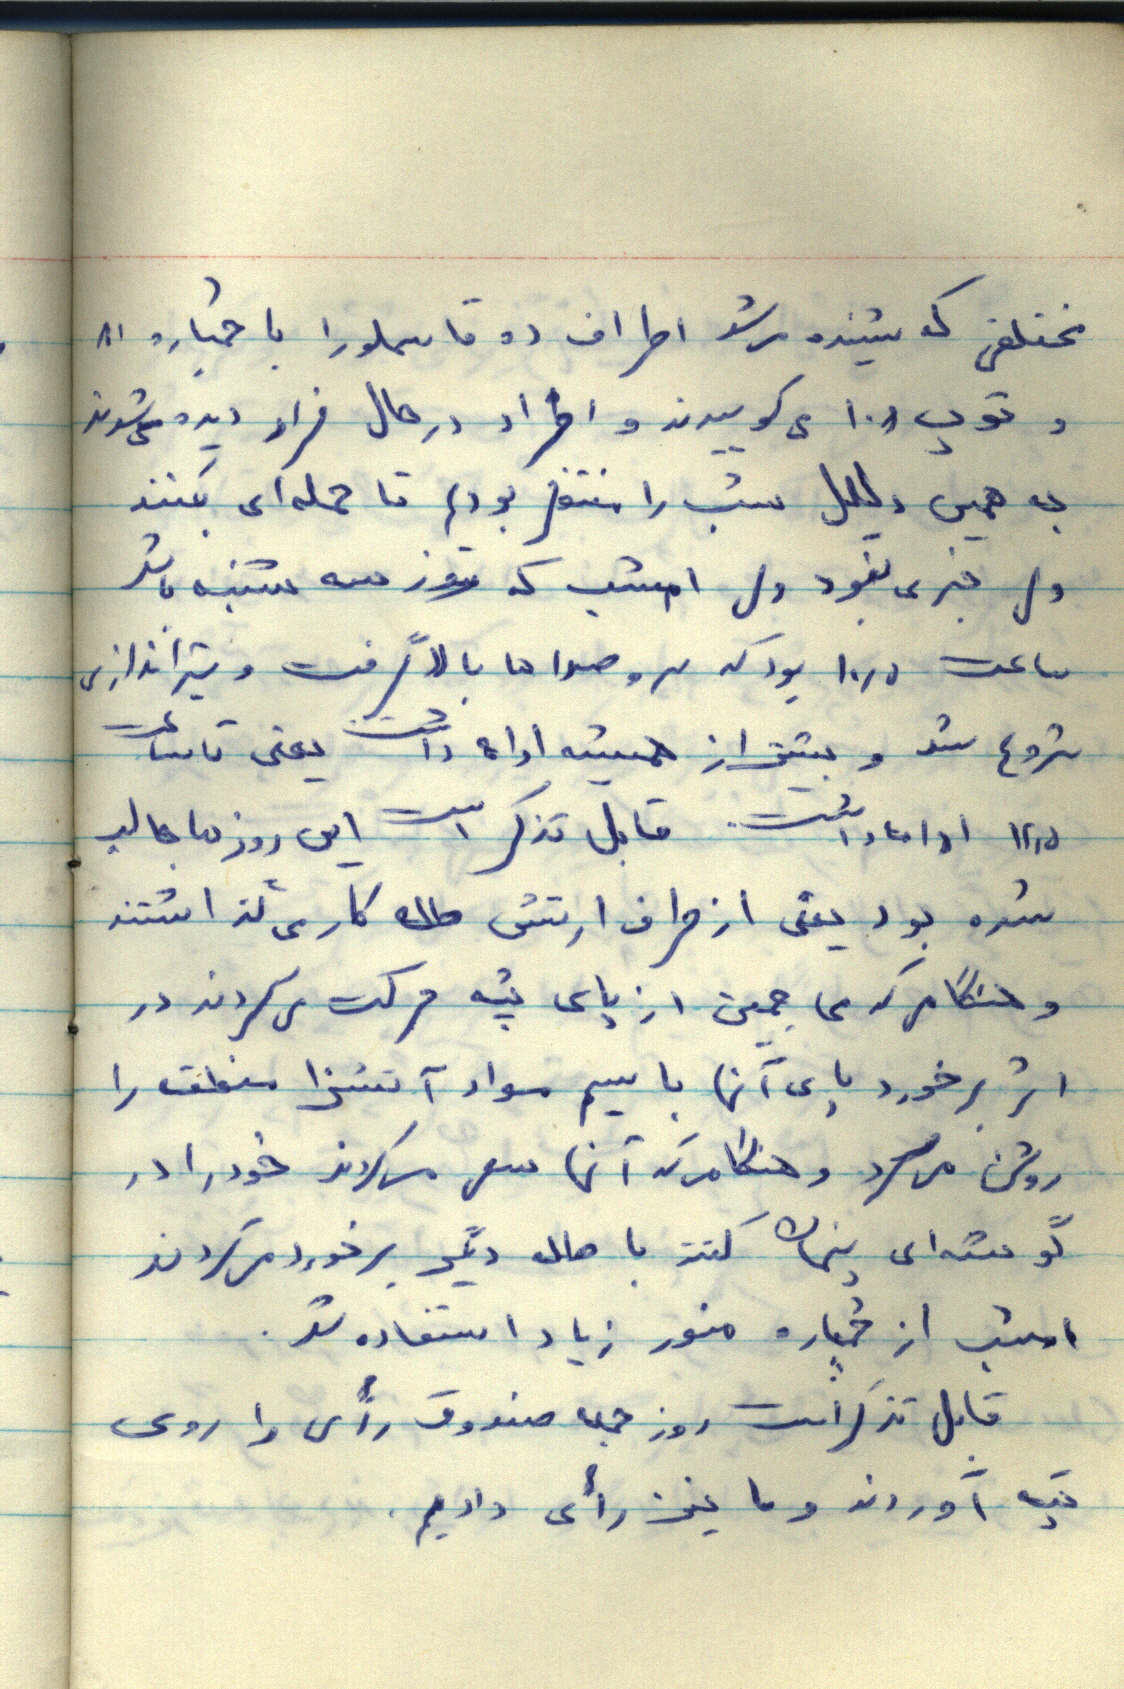 مختلفی که شنیده میشد اطراف ده قاسملو را با خمپاره ۸۱
و توپ ۱۰۵ می کوبیدند و افراد در حال فرار دیده می شدند
به همین دلیل شب را منتظر بودم تا حمله ای بکنند
ولی خبری نبود ولی امشب که روز سه شنبه باشد
ساعت ۱۰٫۵ بود که سر و صداها بالا گرفت و تیراندازی
شروع شد و بیش از همیشه ادامه داشت یعنی تا ساعت
۱۲٫۵ ادامه داشت. قابل تذکر است این روزها جالب
شده بود یعنی از طرف ارتش تله کار می گذاشتند
و هنگامیکه مهاجمین از پای تپه حرکت می کردند در
اثر برخورد پای آنها با سیم مواد آتشزا منطقه را
روشن میکرد و هنگامیکه آنها سعی میکردند خود را در
گوشه ای پنهان کنند با تله دیگر برخورد میکردند
امشب از خمپاره منور زیاد استفاده شد.
قابل تذکر است روز جمعه صندوق رأی را روی
تپه آوردند و ما نیز رأی دادیم.